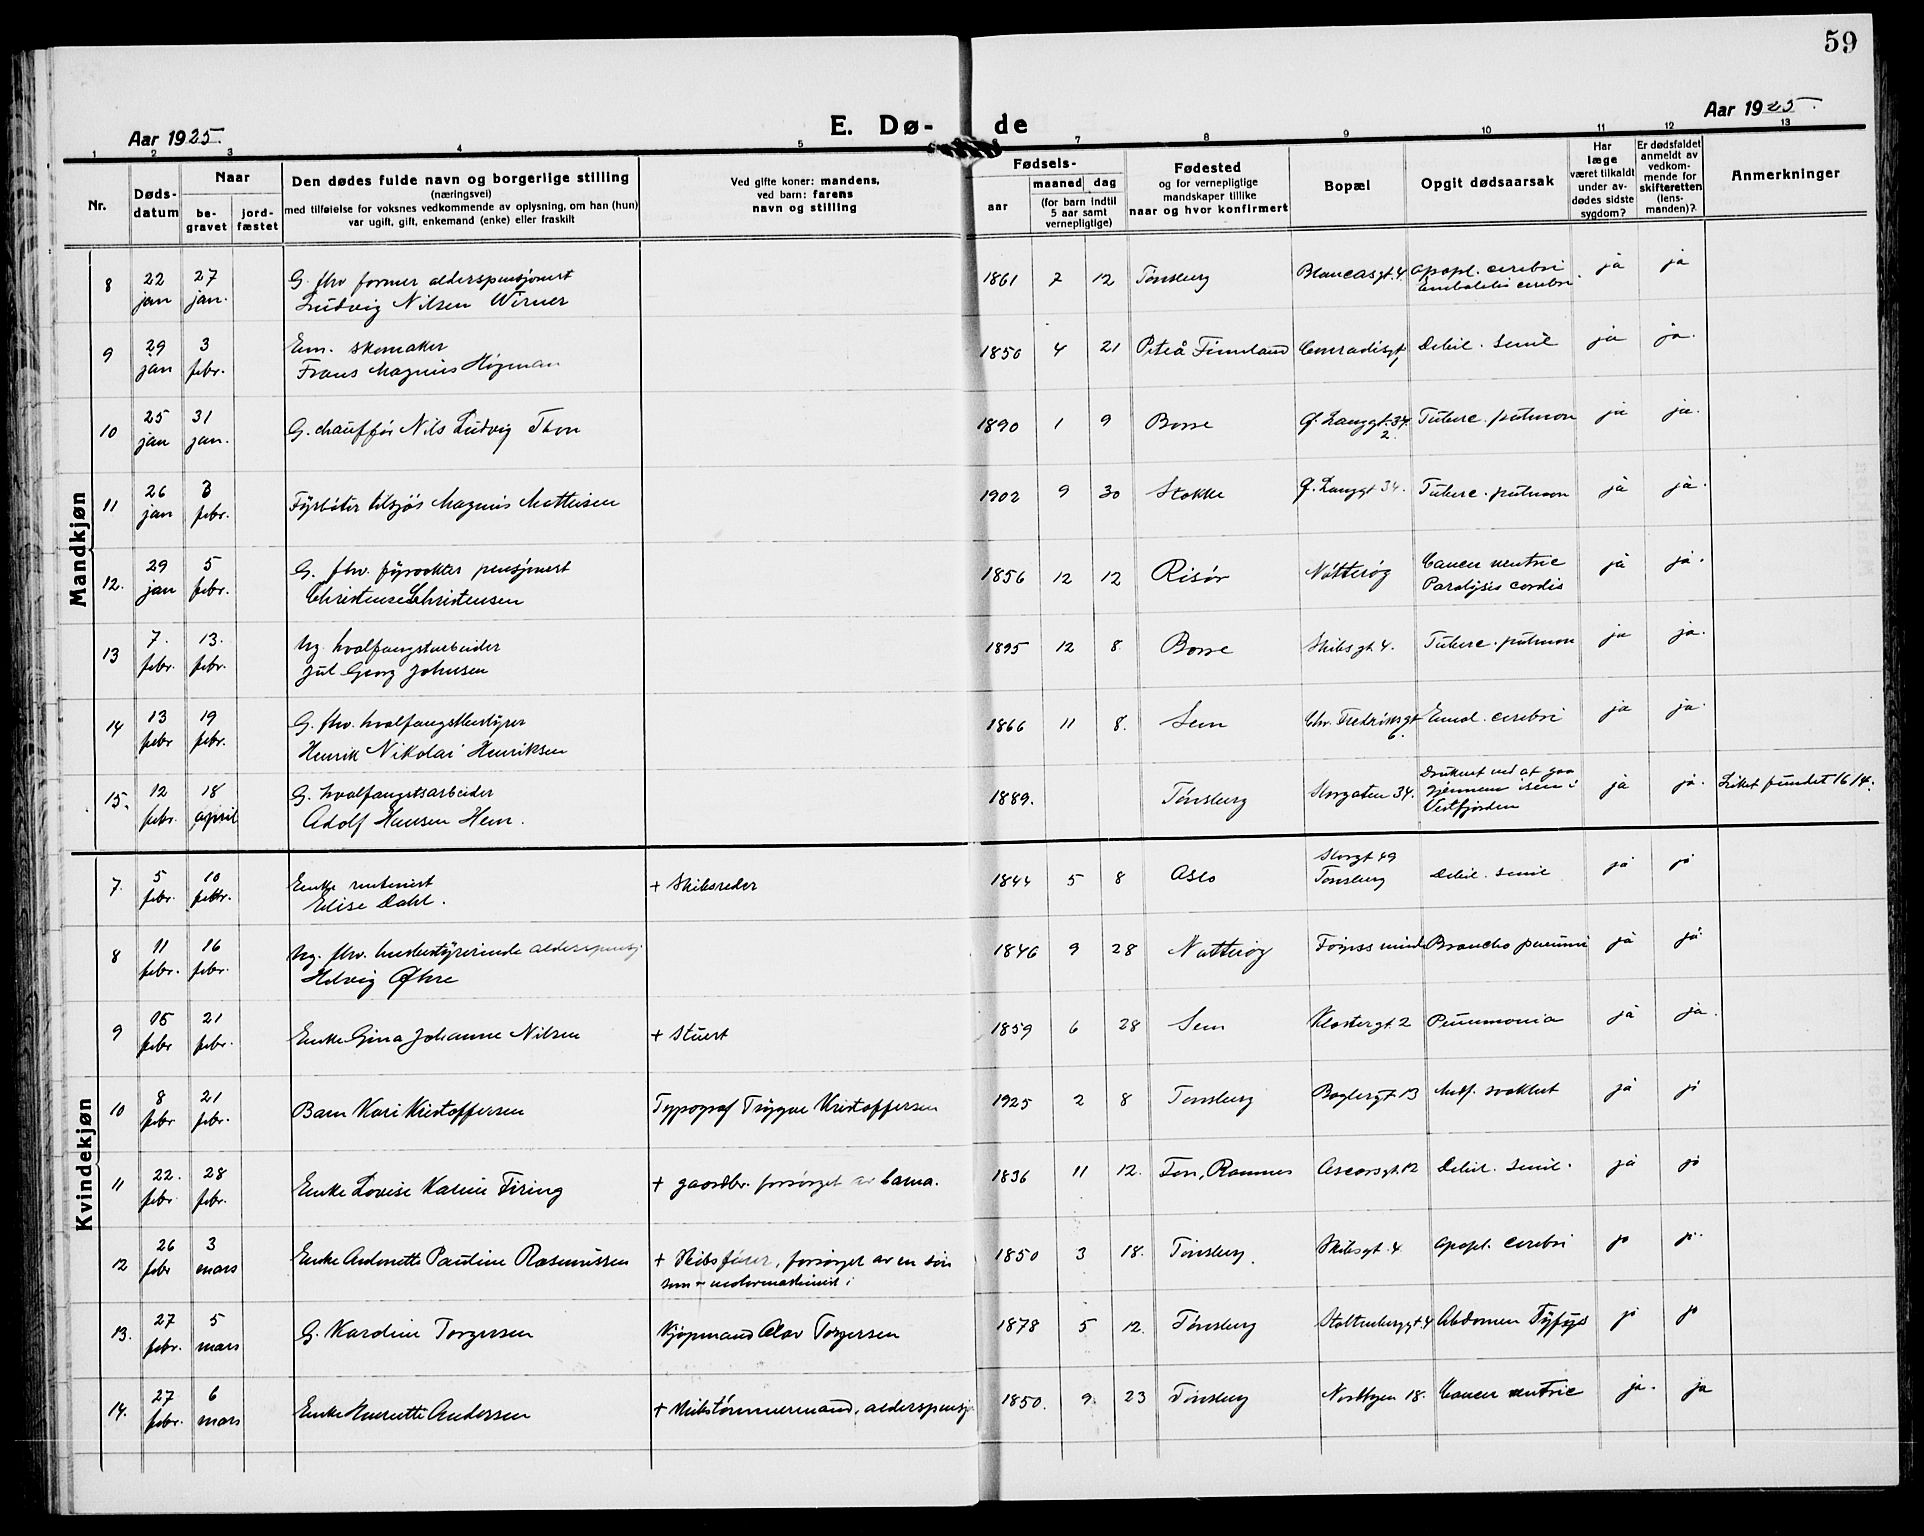 59
Aar 1925.
E. Dø- de
Aar 1925.
1 2 3 4 5 7 8 9 10 11 12 13
Nr.
Døds-
datum
Naar
be-
gravet
jord-
fæstet
Den dødes fulde navn og borgerlige stilling
(næringsvei)
med tilføielse for voksnes vedkommende av oplysning, om han (hun)
var ugift, gift, enkemand (enke) eller fraskilt
Ved gifte koner: mandens,
ved barn: farens
navn og stilling
Fødsels-
aar
maaned dag
(for barn indtil
5 aar samt
vernepligtige)
Fødested
og for vernepligtige
mandskaper tillike
naar og hvor konfirmert
Bopæl
Opgit dødsaarsak
Har
læge
været tilkaldt
under av-
dødes sidste
sygdom?
Er dødsfaldet
anmeldt av
vedkom-
mende for
skifteretten
(lens-
manden)?
Anmerkninger
Mandkjøn
8 22 jan 27 jan. G. fhv former alderspensjonert
Ludvig Nilsen Wirner
1861 2 12 Tønsberg gt. 4. apopl. cerebri
cerebri ja ja
9 29 jan 3 febr. Em. skomaker
Frans Magnus Högman
1850 4 21 Piteå Finnland Conradisgt, Debil. senil ja ja.
10 25 jan 31 jan. G. chauffør Nils Ludvig Thon
1890 1 9 Borre Ø. Langgt. 34
2. Tuberc. pulmon ja ja.
11 26 jan 3 febr. Fyrbøter tilsjøs Magnus Mathisen
1902 9 30 Stokke Ø. Langgt 34. Tuberc. pulmon ja ja.
12. 29 jan 5 febr. G. fhv. fyrvokter pensjonert
Christense Christensen
1856 12 12 Risør Nøtterøy Cancer ventric
Paralysis cordis ja ja.
13 7. febr. 13. febr. Ug. hvalfangstarbeider
Jul Georg Johnsen
1895 12 8 Borre Skibsgt 4. Tuberc. pulmon ja ja.
14 13 febr 19 febr. G. fhv. hvalfangstbestyrer
Henrik Nikolai Henriksen
1866 11 8. Sem Chr. Fredriksgt
6. Embol. cerebri ja ja.
15. 12 febr. 18 april G. hvalfangstsarbeider
Adolf Hansen Hem.
1889. Tønsberg Storgaten 34. Druknet ved at gaa
gjennem isen i
Vestfjorden ja ja. Liket fundet 16/4.
Kvindekjøn
7. 5 febr. 10 febr. Enke rentenist
Elise Dahl.
+ Skibsreder
1844 5 8 Oslo Storgt 49
Tønsberg Debil. senil ja ja
8 11 febr. 16 febr. Ug. fhv. husbestyrerinde alderspensj
Helvig Øhre
1846 9 28 Nøtterøy minde Broncho pneumi ja ja
9 15 febr 21 febr. Enke Gina Johanne Nilsen
+ Stuert
1859 6 28 Sem Klostergt. 2 Pneumonia ja ja.
10 8 febr 21 febr. Barn Kari Kristoffersen
Typograf Trygve Kristoffersen
1925 2 8 Tønsberg Baglergt. 13 Medf. svakhet ja ja
11 22. febr. 28 febr. Enke Lovise Karine Firing
+ gaardbr. forsørget av barna.
1836 11 12. Fon, Ramnes Oscarsgt. 12 Debil. senil. ja ja
12 26 febr 3 mars Enke Antonette Pauline Rasmussen
+ Skibsfører, forsørget av en søn
som motormaskinist i
1850 3 18. Tønsberg. Skibsgt. 4. apopl. cerebri ja ja.
13. 27 febr. 5 mars G. Karoline Torgersen
Kjøpmand Olav Torgersen
1878 5 12. Tønsberg Stoltenberggt. 4 Abdomen Tyfus ja ja
14. 27 febr. 6 mars Enke Henriette Andersen
+ Skibstømmermand, alderspensj
1850. 9 23 Tønsberg Nordbyen 18. Cancer ventric ja. ja